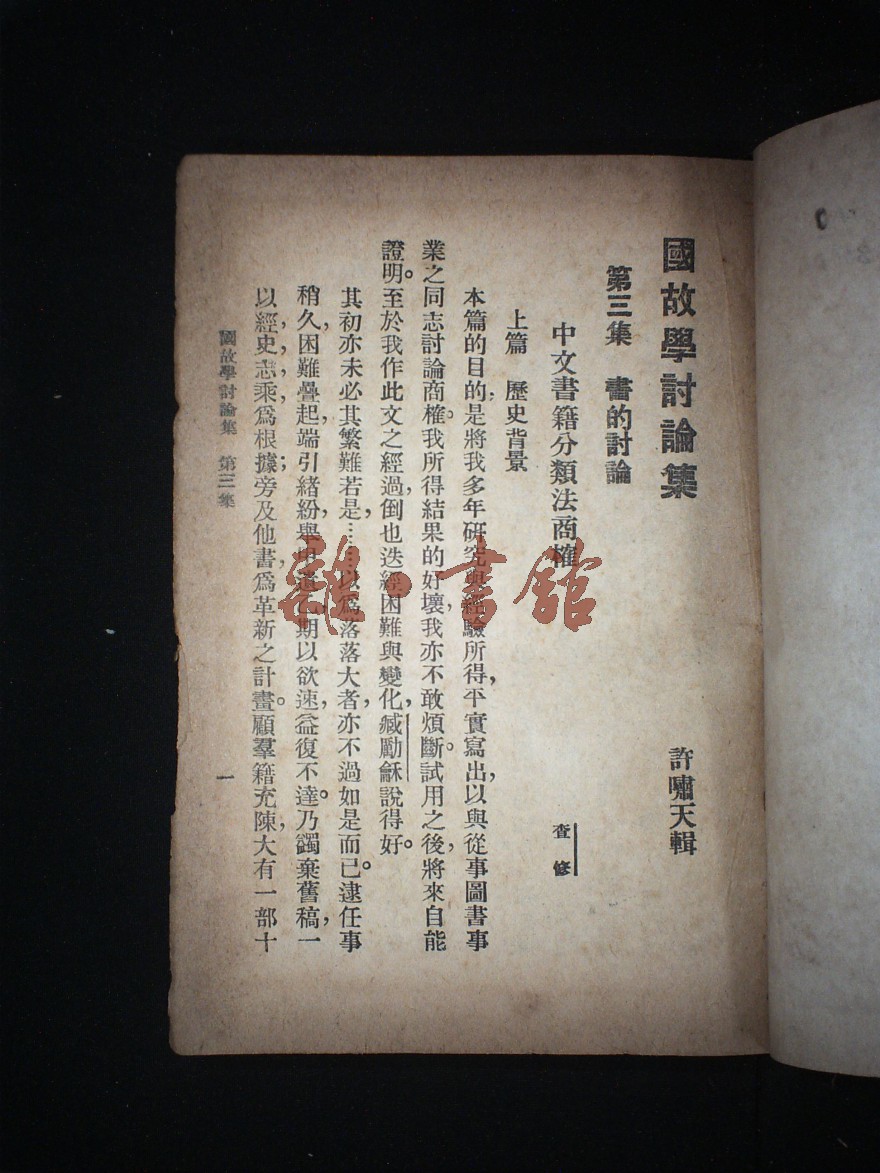 國故學討論集
許嘯天輯
第三集 書的討論
中文書籍分類法商榷
查修
上篇 歷史背景
本篇的目的,是將我多年研究與經驗所得,平實寫出,以與從事圖書事
業之同志討論商榷。我所得結果的好壞,我亦不敢煩斷。試用之後,將來自能
證明。至於我作此文之經過,倒也迭經困難與變化,臧勵龢說得好。
其初亦未必其繁難若是,……以為落落大者,亦不過如是而已。逮任事
稍久,困難疊起,端引緒紛,舉期以欲速,益復不達。乃蠲棄舊稿,一
以經,史,志,乘,為根據;旁及他書,為革新之計畫。顧羣籍充陳,大有一部十
國故學討論集 第三集
一
雜·書館